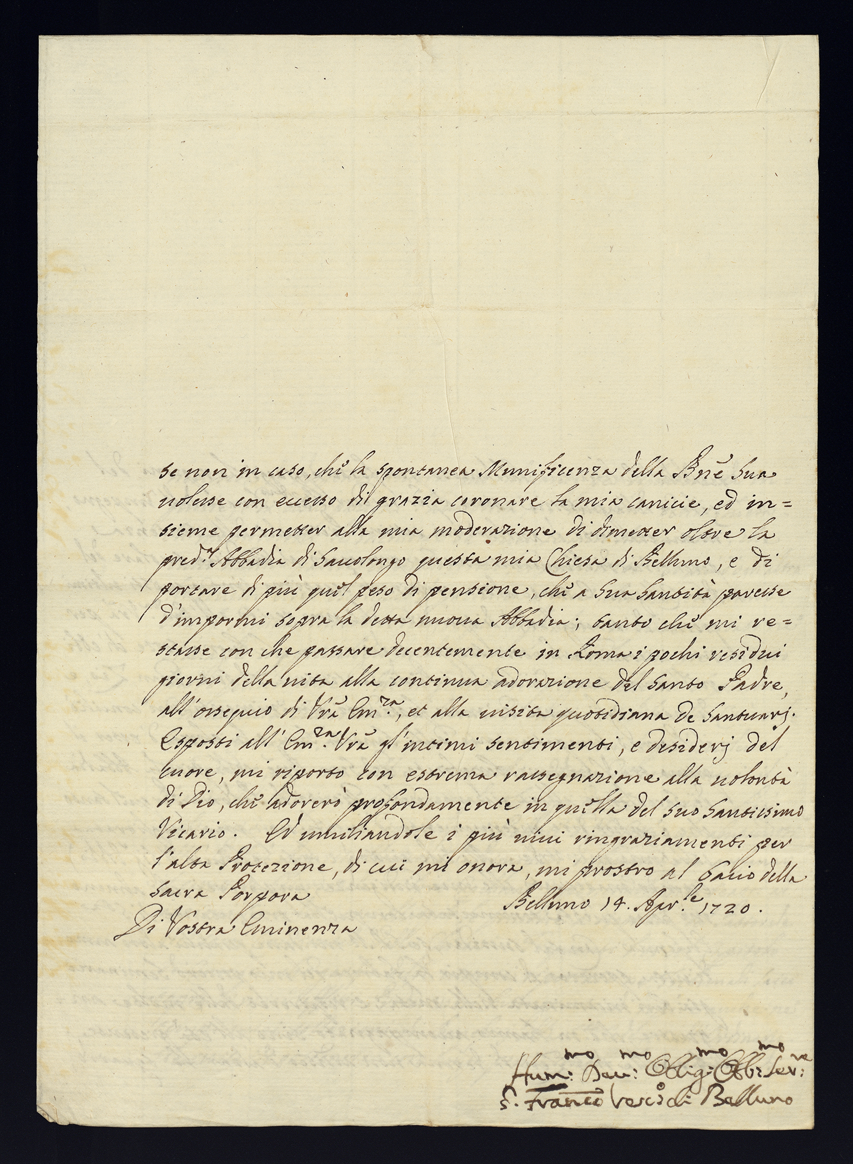 se non in caso, che la spontanea Munificenza della Bne͂ Sua
volesse con eccesso di grazia coronare la mia canicie, ed in=
sieme permetter alla mia moderazione di dimetter oltre la
pred.ᵃ Abbadia di Saccolongo questa mia Chiesa di Belluno, e di
portare di più quel peso di pensione, che a Sua Santità paresse
d'impormi sopra la detta nuova Abbadia; tanto che mi re=
stasse con che passare decentemente in Roma i pochi residui
giorni della vita alla continua adorazione del Santo Padre,
all'ossequio di Vrã Em.ᶻᵃ, et alla visita quotidiana de Santuarj.
Esposti all'Em.ᶻᵃ Vrã gl'intimi sentimenti, e desiderj del
cuore, mi riporto con estrema rassegnazione alla volontà
di Dio, che adorerò profondamente in quella del suo Santissimo
Vicario. Ed umiliandole i più vivi ringraziamenti per
l'alta Protezione, di cui mi onora, mi prostro al bacio della
Sacra Porpora Belluno 14. Apr.ˡᵉ 1720.
Di Vostra Eminenza
Hum:ᵐᵒ Dev:ᵐᵒ Obblig:ᵐᵒ Obb:ᵐᵒ Ser:ʳᵉ
Franc.ᵒ Vesc.ᵒ di Belluno